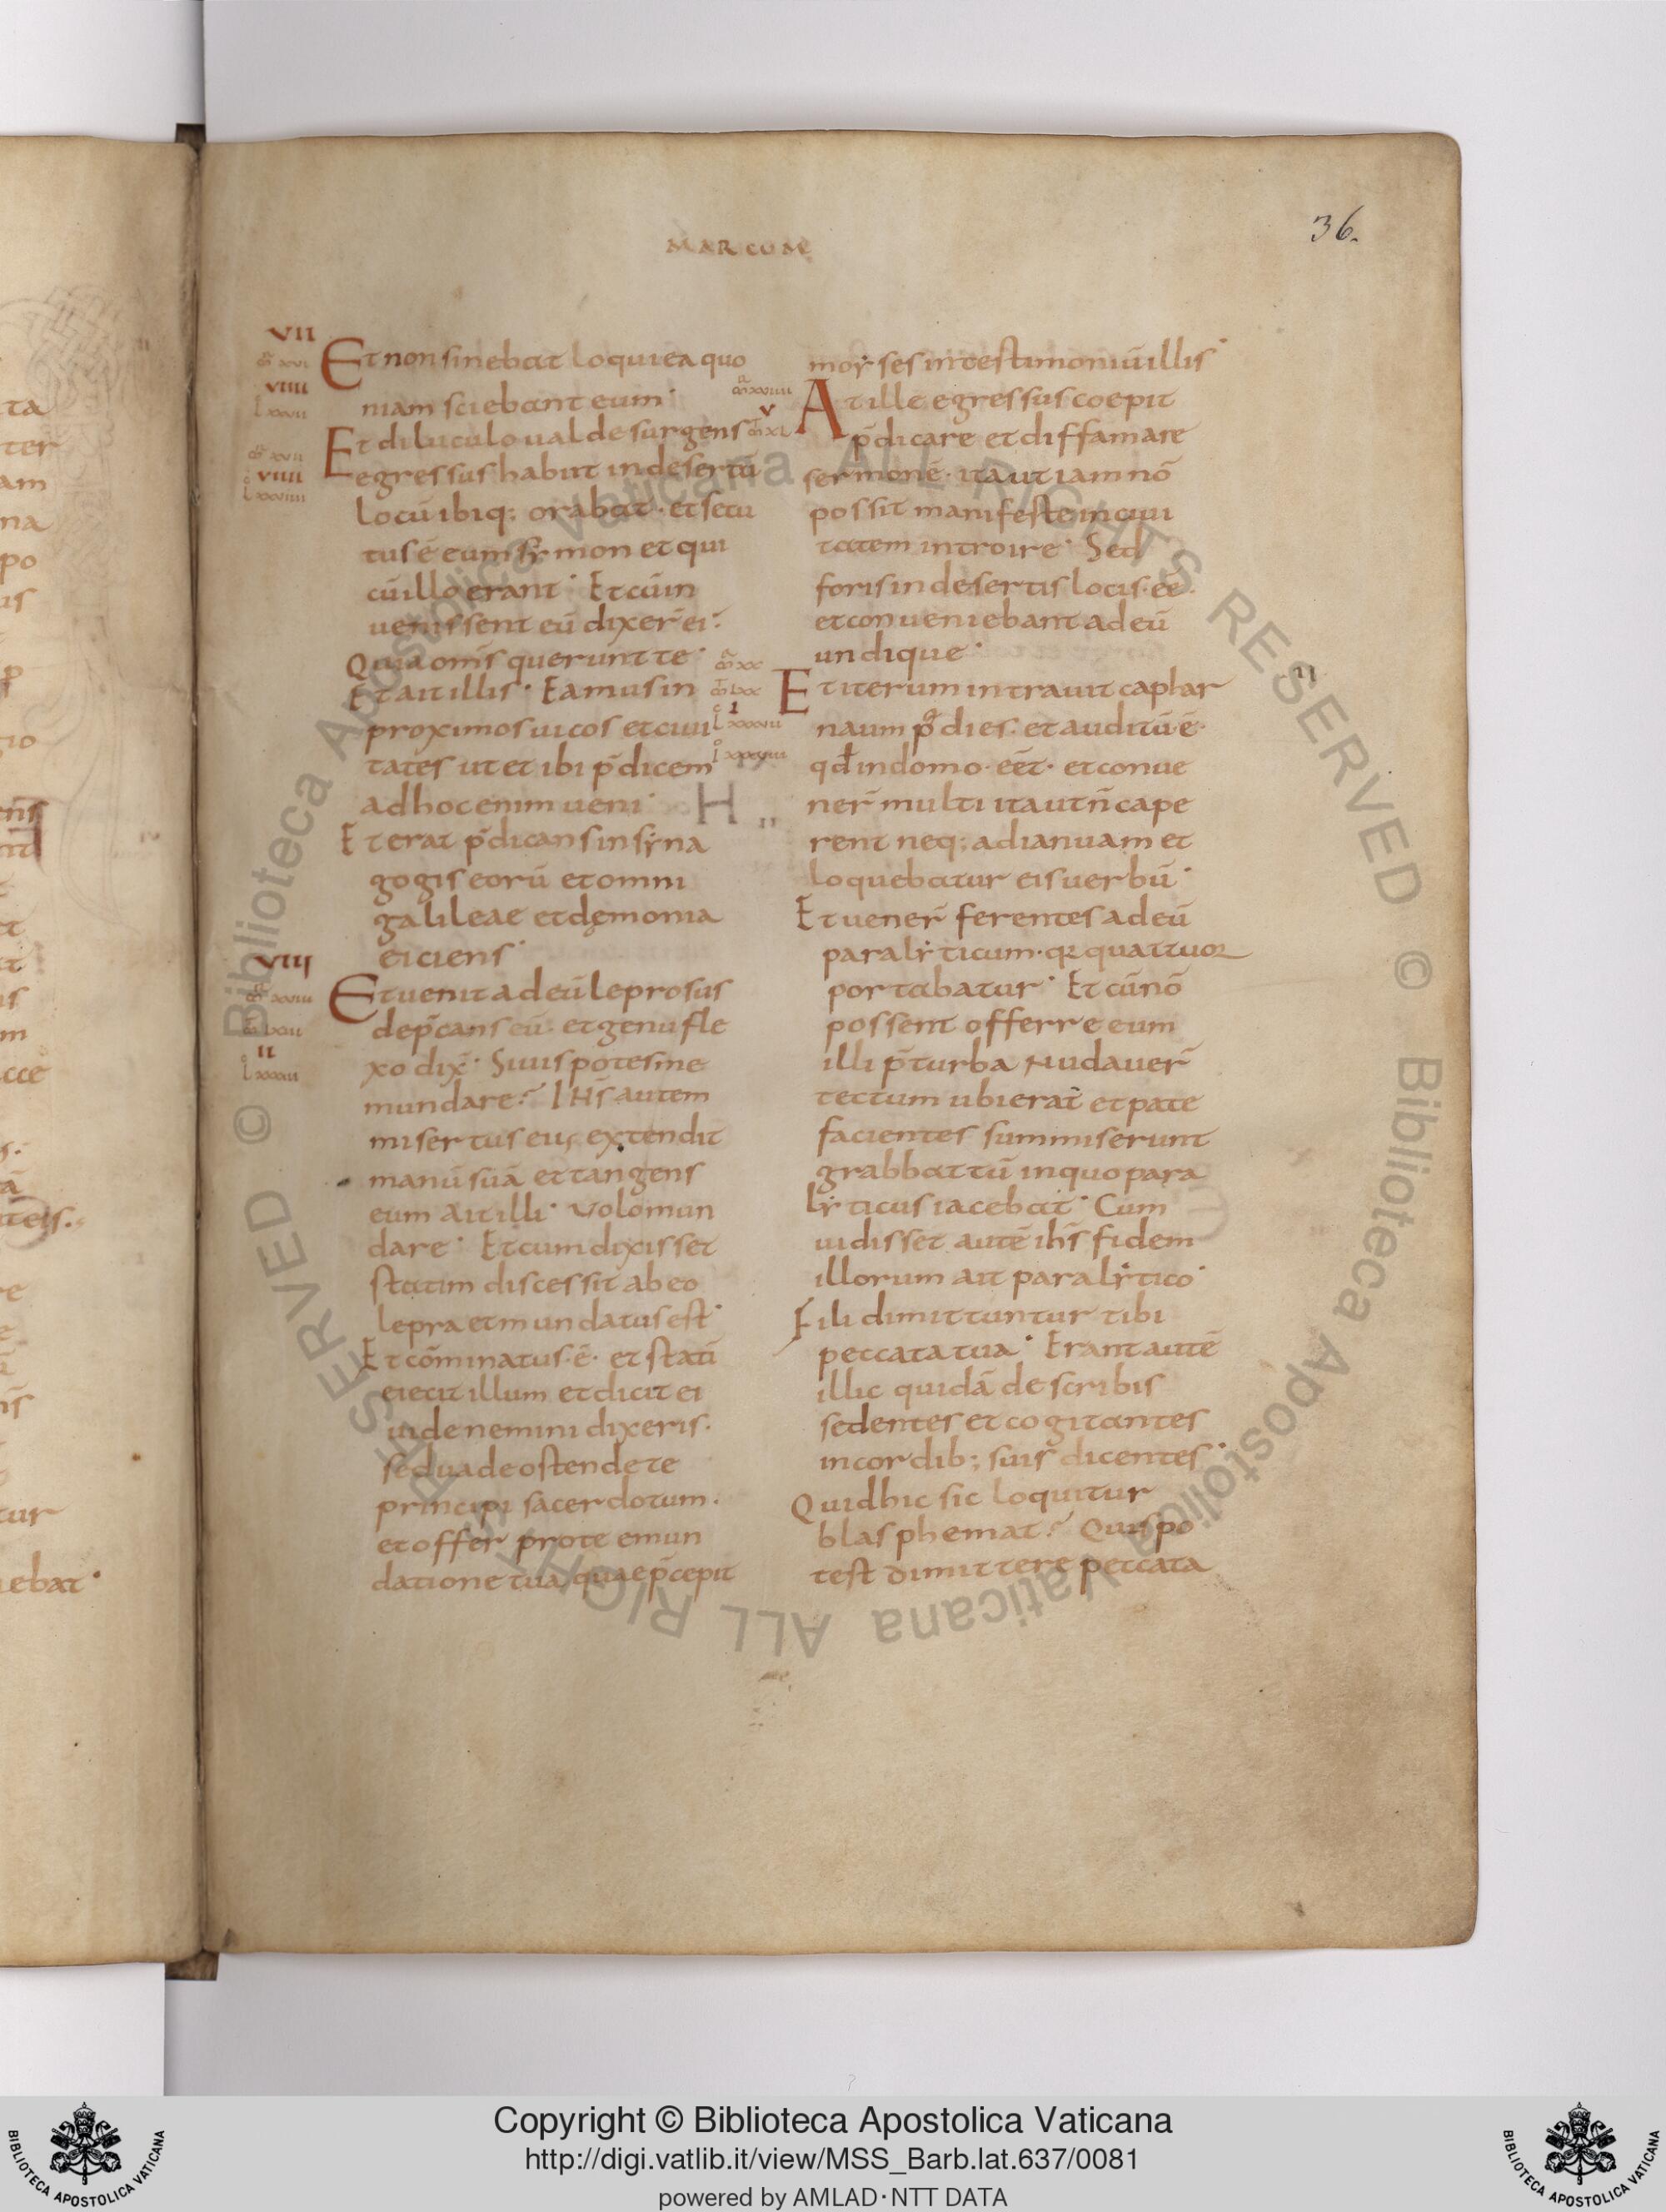 36.
MARCUM
VII
Et non sinebat loqui ea quo
niam sciebant eum·
Et diluculo ualde surgens
egressus habiit in desertū
locū ibiq; orabat· et secu
tus ē eum symon et qui
cū illo erant· Et cū in
uenissent eū dixer̄ ei:
Quia omīs querunt te·
Et ait illis· Eamus in
proximos uicos et ciui
tates ut et ibi p̄dicem
ad hoc enim ueni·
Et erat p̄dicans in syna
gogis eorū et omni
galileae et dęmonia
eiciens·
VIII
Et uenit ad eū leprosus
dep̄cans eū· et genu fle
xo dix̄· Si uis potes me
mundare? IHS̄ autem
misertus eius extendit
manū suā et tangens
eum ait illi· Volo mun
dare· Et cum dixisset
statim discessit ab eo
lepra et mundatus est·
Et cōminatus·ē· et statī
eiecit illum et dicit ei
uide nemini dixeris·
sed uade ostende te
principi sacerdotum·
et offer pro te emun
datione tua quae p̄cepit
moyses in testimoniū illis·
At ille egressus coepit
p̄dicare et diffamare
sermonē· ita ut iam nō
possit manifeste in ciui
tatem introire· Sed
foris in desertis locis·ēē·
et conueniebant ad eū
undique·
Et iterum intrauit caphar
naum p̄ dies· et auditū·ē·
qđ in domo·eēt· et conue
ner̄ multi ita ut n̄ cape
rent neq; ad ianuam et
loquebatur eis uerbū·
Et uener̄ ferentes ad eū
paralyticum· q̄ quattuor
portabatur· Et cū nō
possent offerre eum
illi p̄ turba nudauer̄
tectum ubi erat et pate
facientes summiserunt
grabbattū in quo para
lyticus iacebat· Cum
uidisset autē ih̄s fidem
illorum ait paralytico·
Fili dimittuntur tibi
peccata tua· Erant autē
illic quidā de scribis
sedentes et cogitantes
in cordib; suis dicentes·
Quid hic sic loquitur
blasphemat? Quis po
test dimittere peccata
© Biblioteca Apostolica Vaticana ALL RIGHTS RESERVED © Biblioteca Apostolica Vaticana ALL RIGHTS RESERVED
Copyright © Biblioteca Apostolica Vaticana
http://digi.vatlib.it/view/MSS_Barb.lat.637/0081
powered by AMLAD·NTT DATA
BIBLIOTECA APOSTOLICA VATICANA
BIBLIOTECA APOSTOLICA VATICANA